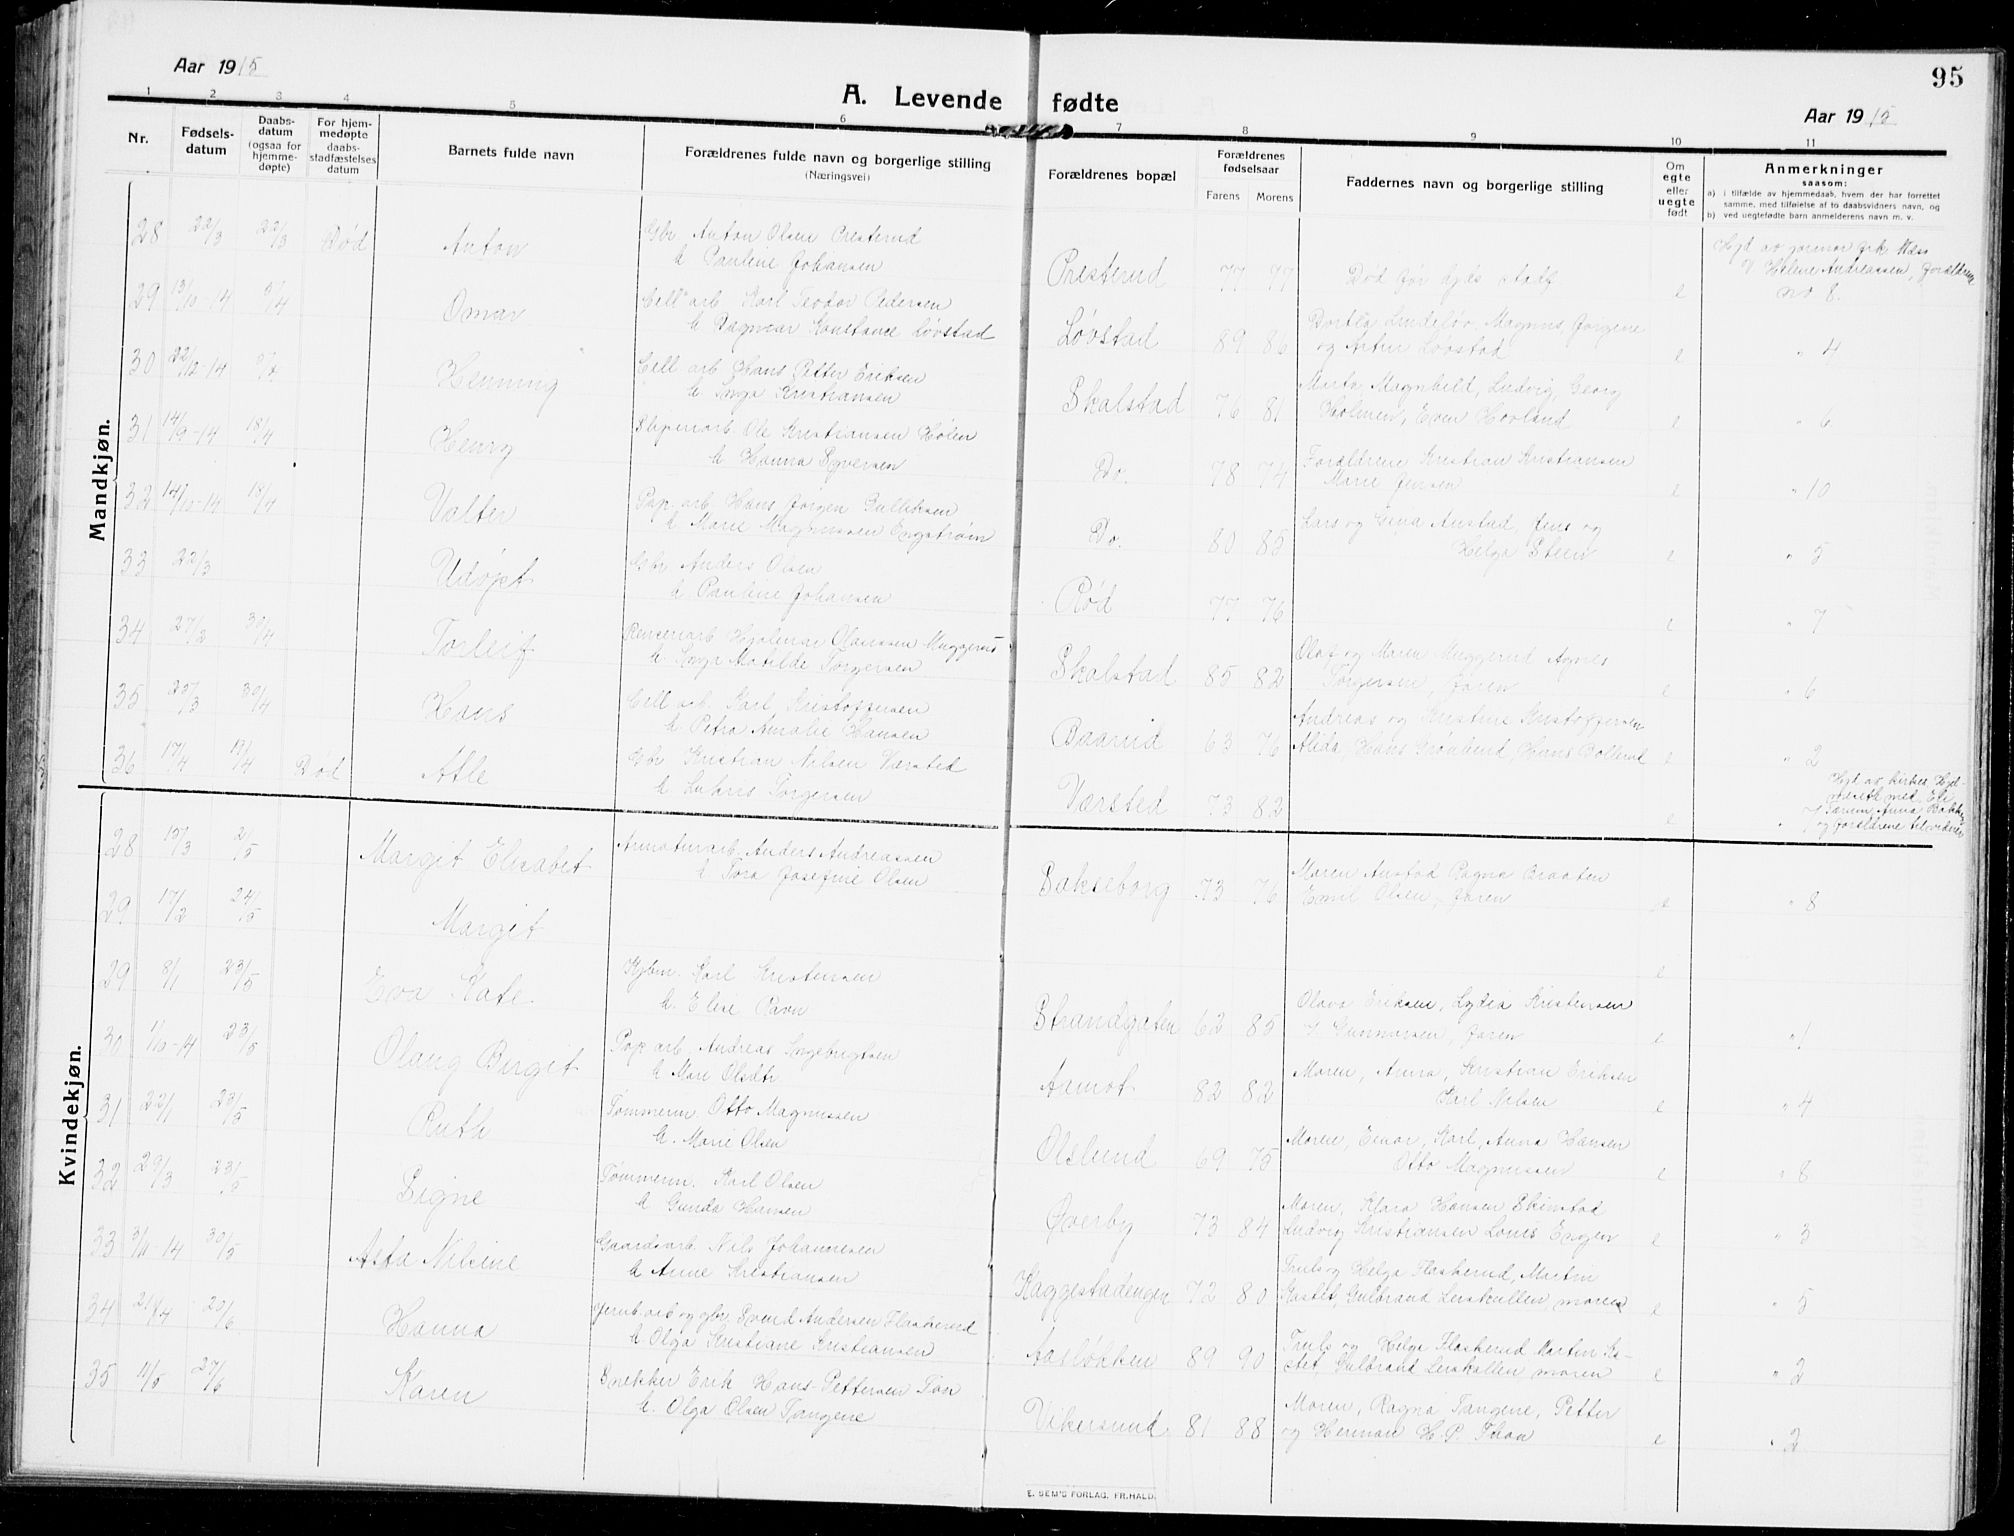 Aar 1915
95
A. Levende fødte
Aar 1915
1 2 3 4 5 6 7 8 9 10 11
Nr.
Fødsels-
datum
Daabs-
datum
(ogsaa for
hjemme-
døpte)
For hjem-
medøpte
daabs-
stadfæstelses
datum
Barnets fulde navn
Forældrenes fulde navn og borgerlige stilling
(Næringsvei)
Forældrenes bopæl
Forældrenes
fødselsaar
Farens Morens
Faddernes navn og borgerlige stilling
Om
egte
eller
uegte
født
Anmerkninger
saasom:
a) i tilfælde av hjemmedaab, hvem der har forrettet
samme, med tilføielse av to daabsvidners navn, og
b) ved uegtefødte barn anmelderens navn m. v.
Mandkjøn.
28 22/3 22/3 Død Anton Gbr Anton Olsen Presterud
& Pauline Johansen
Presterud 77 77 Død før dens stadf e
og Helene Andreassen, forældrene
no 8.
29 13/10-14 5/4 Omar Cell arb Karl Teodor Pedersen
& Dagmar Konstance Løvstad
Løvstad 89 86 Magnus Jørgine
og Artur Løvstad e " 4
30 22/12-14 5/4 Henning Cell arb Hans Petter Eriksen
& Inga Kristiansen
Skalstad 76 81 Marta Magnhild, Ludvig, Georg
Holmen, Even Hovland e " 6
31 14/9-14 18/4 Henry Sliperiarb. Ole Kristiansen Holen
& Hanna Syversen
Do. 78 74 Forældrene Kristian Kristiansen
Marie Jensen e " 10
32 14/10-14 18/4 Valter Pap. arb. Hans Jørgen Gulliksen
& Marie Magnussen Engstrøm
Do. 80 85 Lars og Gina Anstad, Jens og
Helga Steen e " 5
33 22/3 Udøpt Gbr Anders Olsen
& Pauline Johansen
Rød 77 76 e " 7
34 27/2 30/4 Torleif Renseriarb Hjalmar Olaussen Muggerud
& Inga Matilde Torgersen
Skalstad 85 82 Olaf og Maren Muggerud Agnes
Torgersen, faren e " 6
35 20/3 30/4 Hans Cell arb. Karl Kristoffersen
& Petra Amalie Hansen
Baarud 63 76 Andreas og Kristine Kristoffersen
Alida, Hans Grøabend, Hans Bollerud e " 2
36 17/4 19/4 Død Atle Gbr Kristian Nilsen Værsted
& Lukris Torgersen
Værsted 73 82 e " 7
og forældrene til vidner
Kvindekjøn.
28 13/3 2/5 Margit Elisabet Armaturarb. Anders Andreassen
& Tora Josefine Olsen
Sakseborg 73 76 Maren Anstad Ragna Braaten
Emil Olsen, faren e " 8
29 17/2 24/5 Margit
e
29 8/1 23/5 Eva Kate Kjbm. Karl Kristensen
& Elise Ravn
Strandgaten 62 85 Olava Eriksen, Lydia Kristensen
Gunnarsen, faren e " 1
30 1/10-14 23/5 Olaug Birgit Pap arb. Andreas Ingebrigtsen
& Mari Olsdtr
Aamot 82 82 Moren, Anna, Kristian Eriksen
Karl Nilsen e " 4
31 22/1 23/5 Ruth Tømmerm. Otto Magnussen
& Marie Olsen
Olslund 69 75 Moren, Einar, Karl, Anna Hansen
Otto Magnussen e " 8
32 29/3 23/5 Signe Tømmerm. Karl Olsen
& Gunda Hansen
Øverby 73 84 Moren, Klara Hansen Skinstad
Ludvig Kristiansen Louis Engen e " 3
33 3/11-14 30/5 Asta Nilsine Gaardsarb. Nils Johannesen
& Anne Kristiansen
Haggestadengen 72 80 Truls og Helga Flaskerud, Martin
Kastet, Gulbrand Lerskallen, moren e " 5
34 21/4 20/6 Hanna Jernb.arb og gbr. Svend Andersen Flaskerud
& Olga Kristiane Kristiansen
Aasløkken 89 90 Truls og Helga Flaskerud Martin Ka-
stet, Gulbrand Lerskallen moren e " 2
35 11/5 27/6 Karen Snekker Erik Hans-Pettersen Ton
& Olga Olsen Tangene
Vikersund 81 88 Moren, Ragna Tangene, Petter
og Herman H. P. Thon e " 2
E. SEM'S FORLAG, FR.HALD.